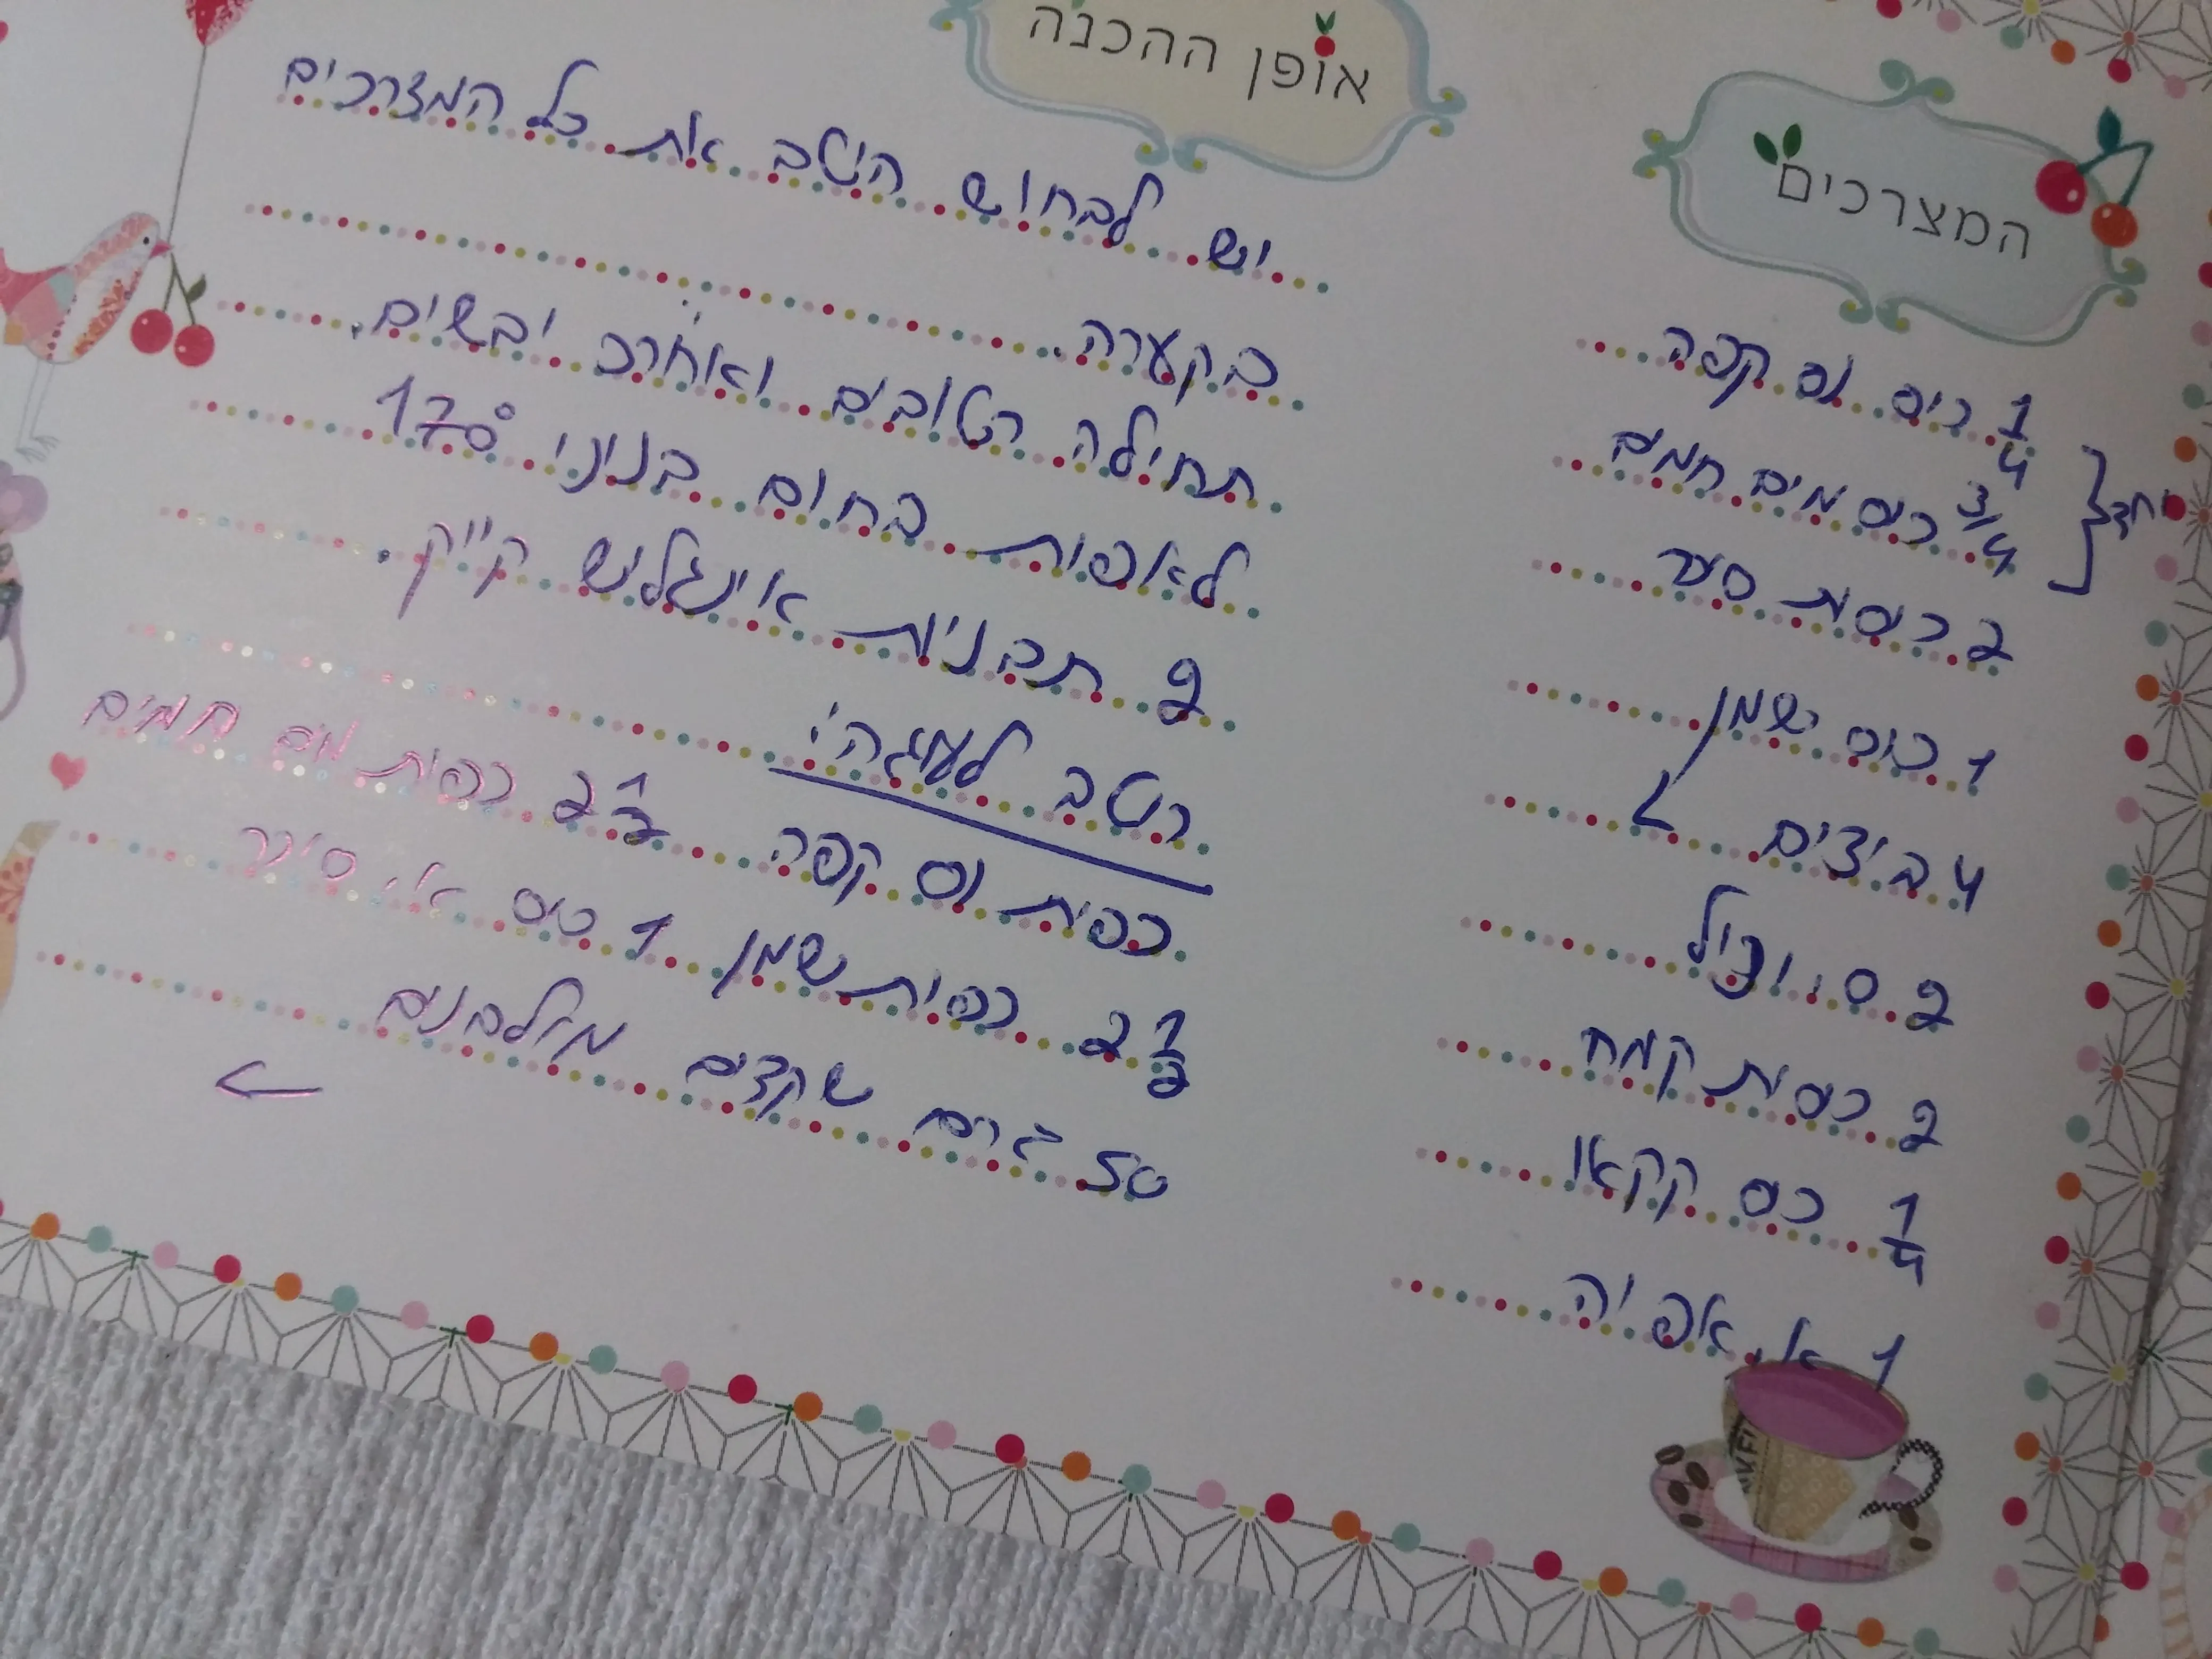 המצרכים
1/4 כוס נס קפה
3/4 כוס מים חמים
יחד
2 כוסות סוכר
1 כוס שמן
4 ביצים
2 ס. וניל
2 כוסות קמח
1/4 כוס קקאו
1 א. אפיה
אופן ההכנה
יש לבחוש היטב את כל המצרכים
בקערה.
תחילה רטובים ואח"כ יבשים.
לאפות בחום בנינוי 170°
2 תבניות אינגליש קייק.
רוטב לעוגה:
כפית נס קפה 2 1/2 כפיות מים חמים
2 1/2 כפיות שמן 1 כוס א. סוכר
50 גרם שקדים מולבנים
←